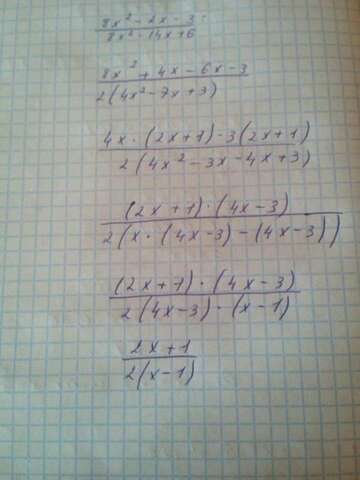 8x² - 2x - 3
8x² - 14x + 6
8x² + 4x - 6x - 3
2(4x² - 7x + 3)
4x · (2x + 1) · 3(2x + 1)
2(4x² - 3x - 4x + 3)
(2x + 1) · (4x - 3)
2(x · (4x - 3) - (4x - 3))
(2x + 1) · (4x - 3)
2(4x - 3) · (x - 1)
2x + 1
2(x - 1)